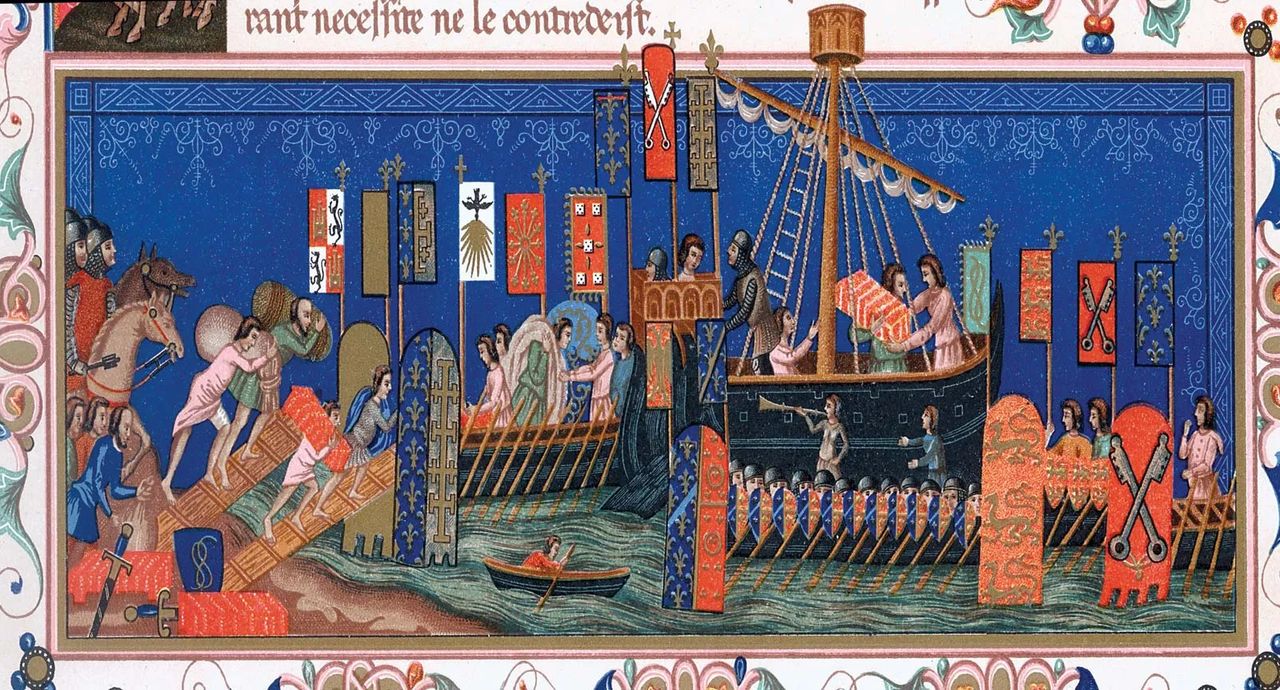 rant necessite ne le contredeist.